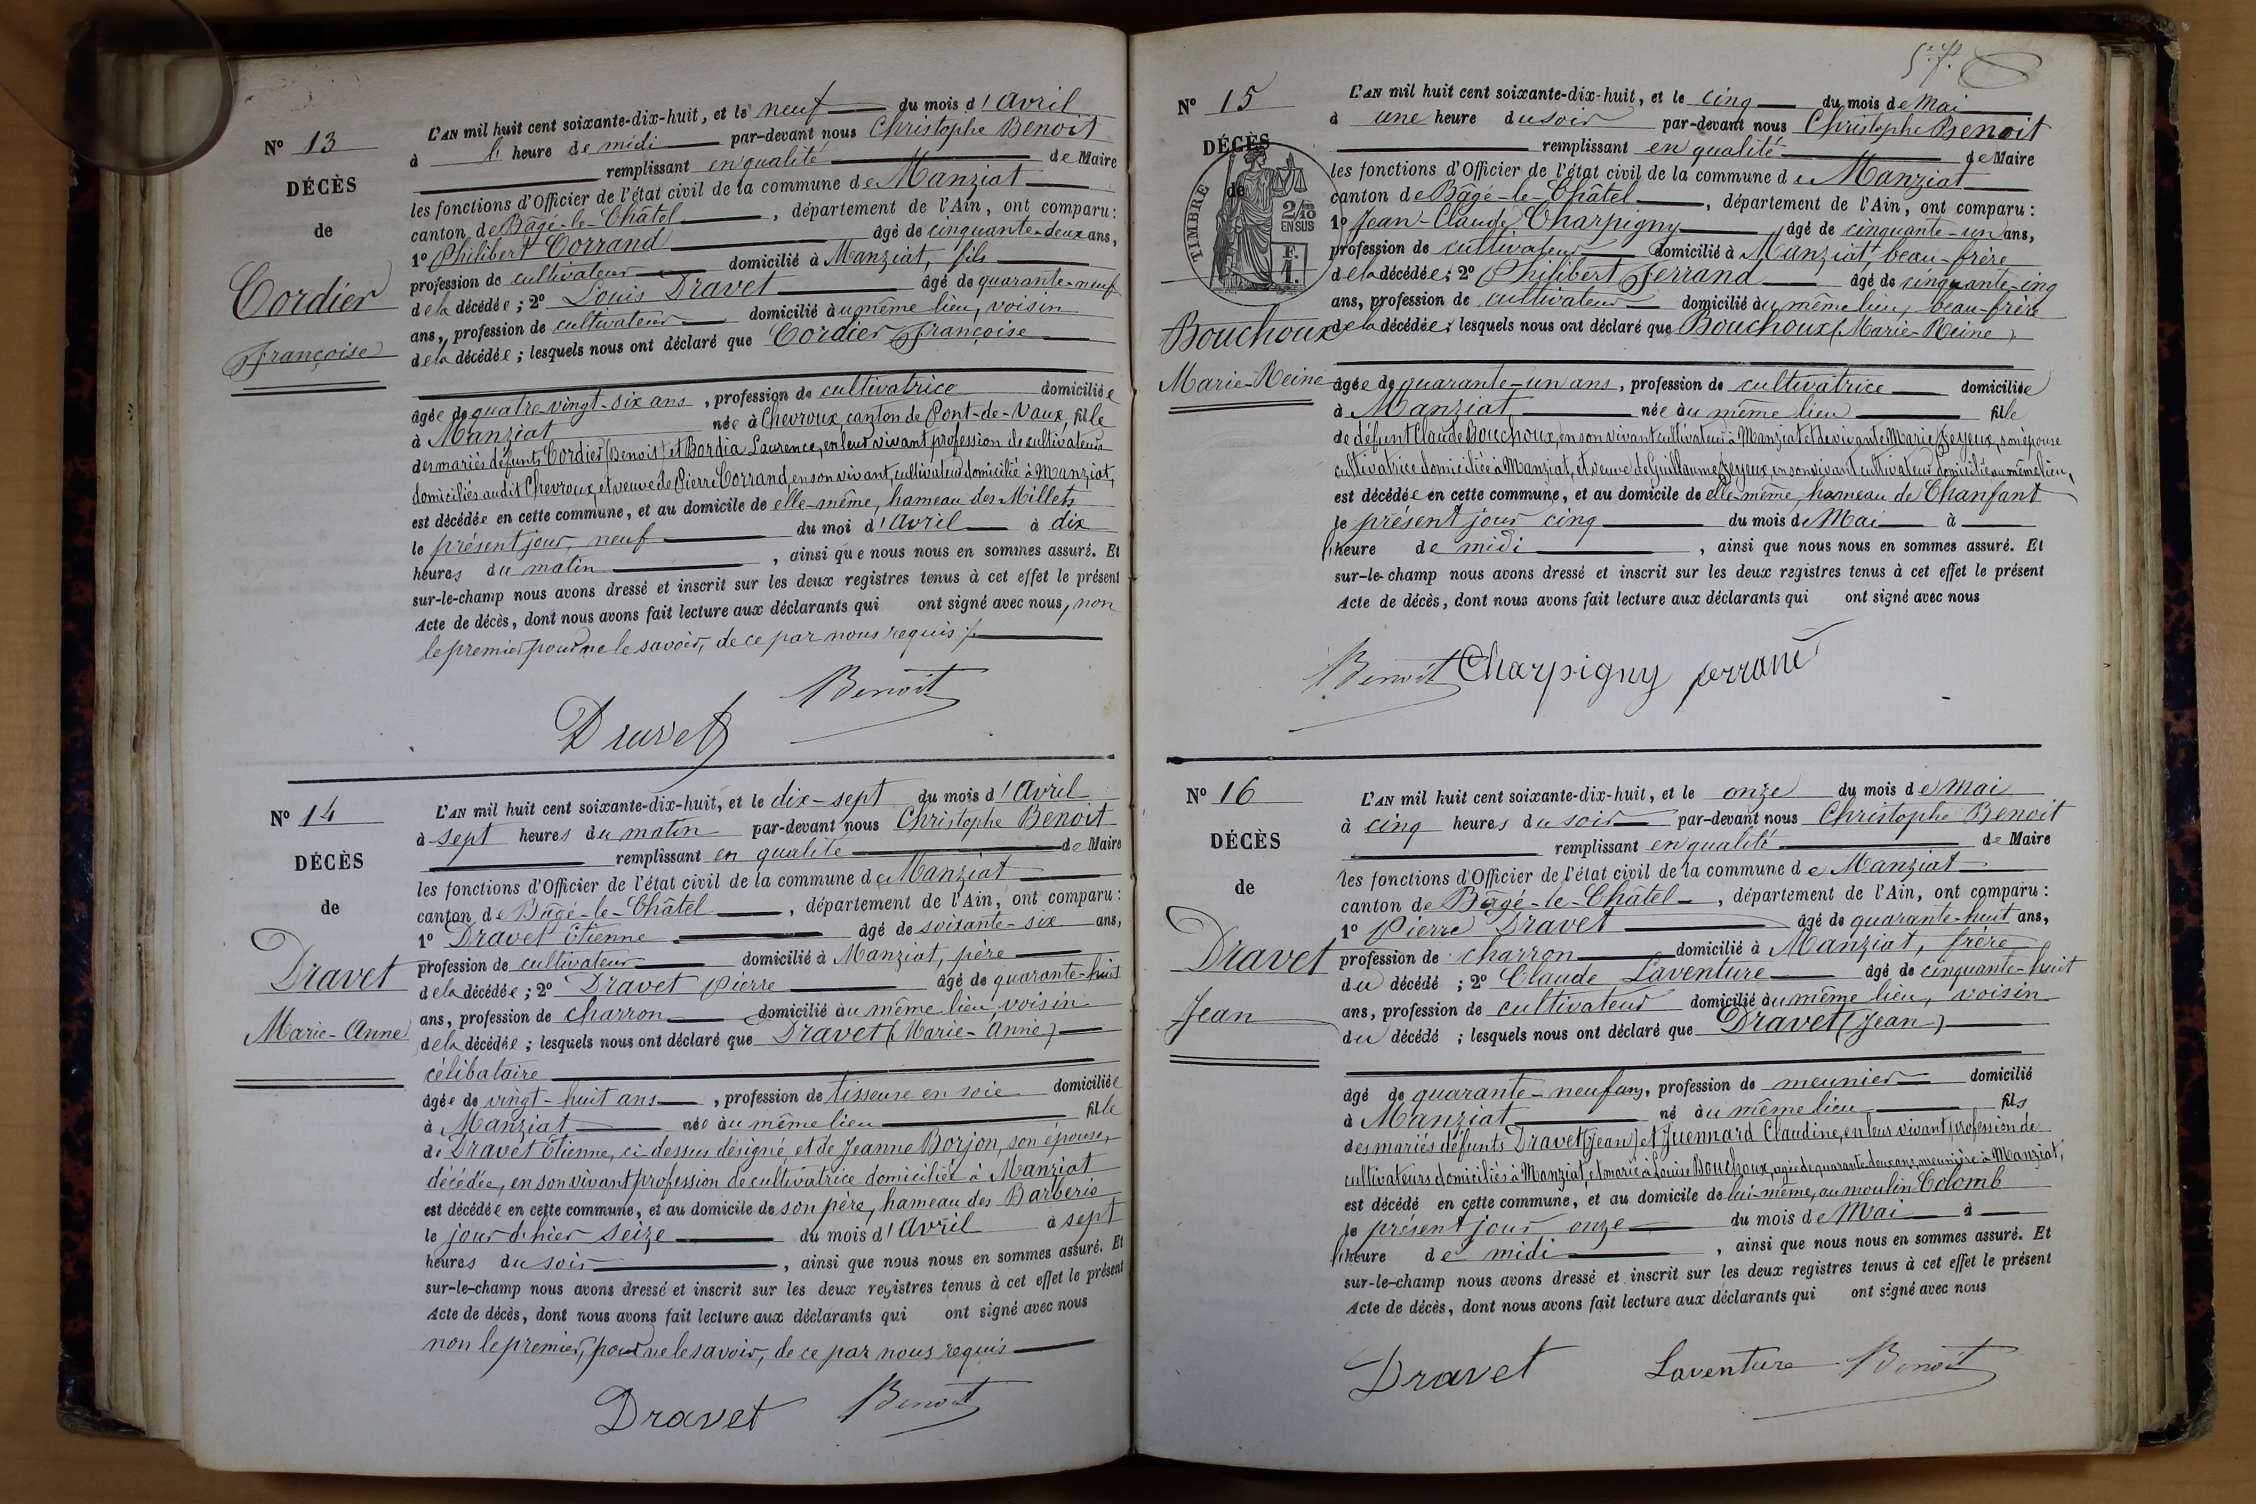 N° 13
DÉCÈS
de
Cordier
Françoise
L'AN mil huit cent soixante-dix-huit, et le neuf du mois d'Avril
à l'heure de midi par-devant nous Christophe Benoit
remplissant en qualité de Maire
les fonctions d'Officier de l'état civil de la commune de Manziat
canton de Bâgé-le-Châtel, département de l'Ain, ont comparu :
1° Philibert Corrand âgé de cinquante-deux ans,
profession de cultivateur domicilié à Manziat, fils
de la décédée ; 2° Louis Dravet âgé de quarante-neuf
ans, profession de cultivateur domicilié au même lieu, voisin
de la décédée ; lesquels nous ont déclaré que Cordier Françoise
âgée de quatre-vingt-six ans, profession de cultivatrice domiciliée
à Manziat née à Chevroux, canton de Pont-de-Vaux, fille
des mariés défunts Cordier (Benoit) et Bordia Laurence, en leur vivant profession de cultivateurs
domiciliés au dit Chevroux, et veuve de Pierre Corrand, en son vivant, cultivateur domicilié à Manziat,
est décédée en cette commune, et au domicile de elle-même, hameau des Millets
le présent jour, neuf du moi d'Avril à dix
heures du matin, ainsi que nous nous en sommes assuré. Et
sur-le-champ nous avons dressé et inscrit sur les deux registres tenus à cet effet le présent
Acte de décès, dont nous avons fait lecture aux déclarants qui ont signé avec nous, non
le premier pour ne le savoir, de ce par nous requis
Benoit
Dravet
N° 14
DÉCÈS
de
Dravet
Marie-Anne
L'AN mil huit cent soixante-dix-huit, et le dix-sept du mois d'Avril
à sept heures du matin par-devant nous Christophe Benoit
remplissant en qualité de Maire
les fonctions d'Officier de l'état civil de la commune de Manziat
canton de Bâgé-le-Châtel, département de l'Ain, ont comparu :
1° Dravet Etienne âgé de soixante-six ans,
profession de cultivateur domicilié à Manziat, père
de la décédée ; 2° Dravet Pierre âgé de quarante-huit
ans, profession de charron domicilié au même lieu voisin
de la décédée ; lesquels nous ont déclaré que Dravet (Marie-Anne)
célibataire
âgée de vingt-huit ans, profession de tisseuse en soie domiciliée
à Manziat née au même lieu fille
de Dravet Etienne, ci-dessus désigné et de Jeanne Borjon, son épouse,
décédée, en son vivant profession de cultivatrice domiciliée à Manziat
est décédée en cette commune, et au domicile de son père, hameau des Barberis
le jour d'hier seize du mois d'Avril à sept
heures du soir, ainsi que nous nous en sommes assuré. Et
sur-le-champ nous avons dressé et inscrit sur les deux registres tenus à cet effet le présent
Acte de décès, dont nous avons fait lecture aux déclarants qui ont signé avec nous
non le premier, pour ne le savoir, de ce par nous requis
Dravet Benoit
N° 15
DÉCÈS
de
TIMBRE
2/10 EN SUS
F. 1.
Bouchoux
Marie-Reine
L'AN mil huit cent soixante-dix-huit, et le cinq du mois de Mai
à une heure du soir par-devant nous Christophe Benoit
remplissant en qualité de Maire
les fonctions d'Officier de l'état civil de la commune de Manziat
canton de Bâgé-le-Châtel, département de l'Ain, ont comparu :
1° Jean-Claude Charpigny âgé de cinquante-un ans,
profession de cultivateur domicilié à Manziat beau-frère
de la décédée ; 2° Philibert Ferrand âgé de cinquante-cinq
ans, profession de cultivateur domicilié au même lieu, beau-frère
de la décédée ; lesquels nous ont déclaré que Bouchoux (Marie-Reine)
âgée de quarante-un ans, profession de cultivatrice domiciliée
à Manziat née au même lieu fille
de défunt Claude Bouchoux, en son vivant cultivateur à Manziat et de vivante Marie Feyeux, son épouse
cultivatrice domiciliée à Manziat, et veuve de Guillaume Feyeux, en son vivant cultivateur domicilié au même lieu,
est décédée en cette commune, et au domicile de elle-même, hameau de Chanfant
le présent jour cinq du mois de Mai à
l'heure de midi, ainsi que nous nous en sommes assuré. Et
sur-le-champ nous avons dressé et inscrit sur les deux registres tenus à cet effet le présent
Acte de décès, dont nous avons fait lecture aux déclarants qui ont signé avec nous
Benoit Charpigny ferrand
N° 16
DÉCÈS
de
Dravet
Jean
L'AN mil huit cent soixante-dix-huit, et le onze du mois de Mai
à cinq heures du soir par-devant nous Christophe Benoit
remplissant en qualité de Maire
les fonctions d'Officier de l'état civil de la commune de Manziat
canton de Bâgé-le-Châtel, département de l'Ain, ont comparu :
1° Pierre Dravet âgé de quarante-huit ans,
profession de charron domicilié à Manziat, frère
du décédé ; 2° Claude Laventure âgé de cinquante-huit
ans, profession de cultivateur domicilié au même lieu, voisin
du décédé ; lesquels nous ont déclaré que Dravet (Jean)
âgé de quarante-neuf ans, profession de meunier domicilié
à Manziat né au même lieu fils
des mariés défunts Dravet (Jean) et Juennard Claudine, en leur vivant profession de
cultivateurs domiciliés à Manziat, et marié à Louise Bouchoux, agée de quarante-deux ans, meunière à Manziat,
est décédé en cette commune, et au domicile de lui-même, au moulin Colomb
le présent jour onze du mois de Mai à
l'heure de midi, ainsi que nous nous en sommes assuré. Et
sur-le-champ nous avons dressé et inscrit sur les deux registres tenus à cet effet le présent
Acte de décès, dont nous avons fait lecture aux déclarants qui ont signé avec nous
Dravet Laventure Benoit